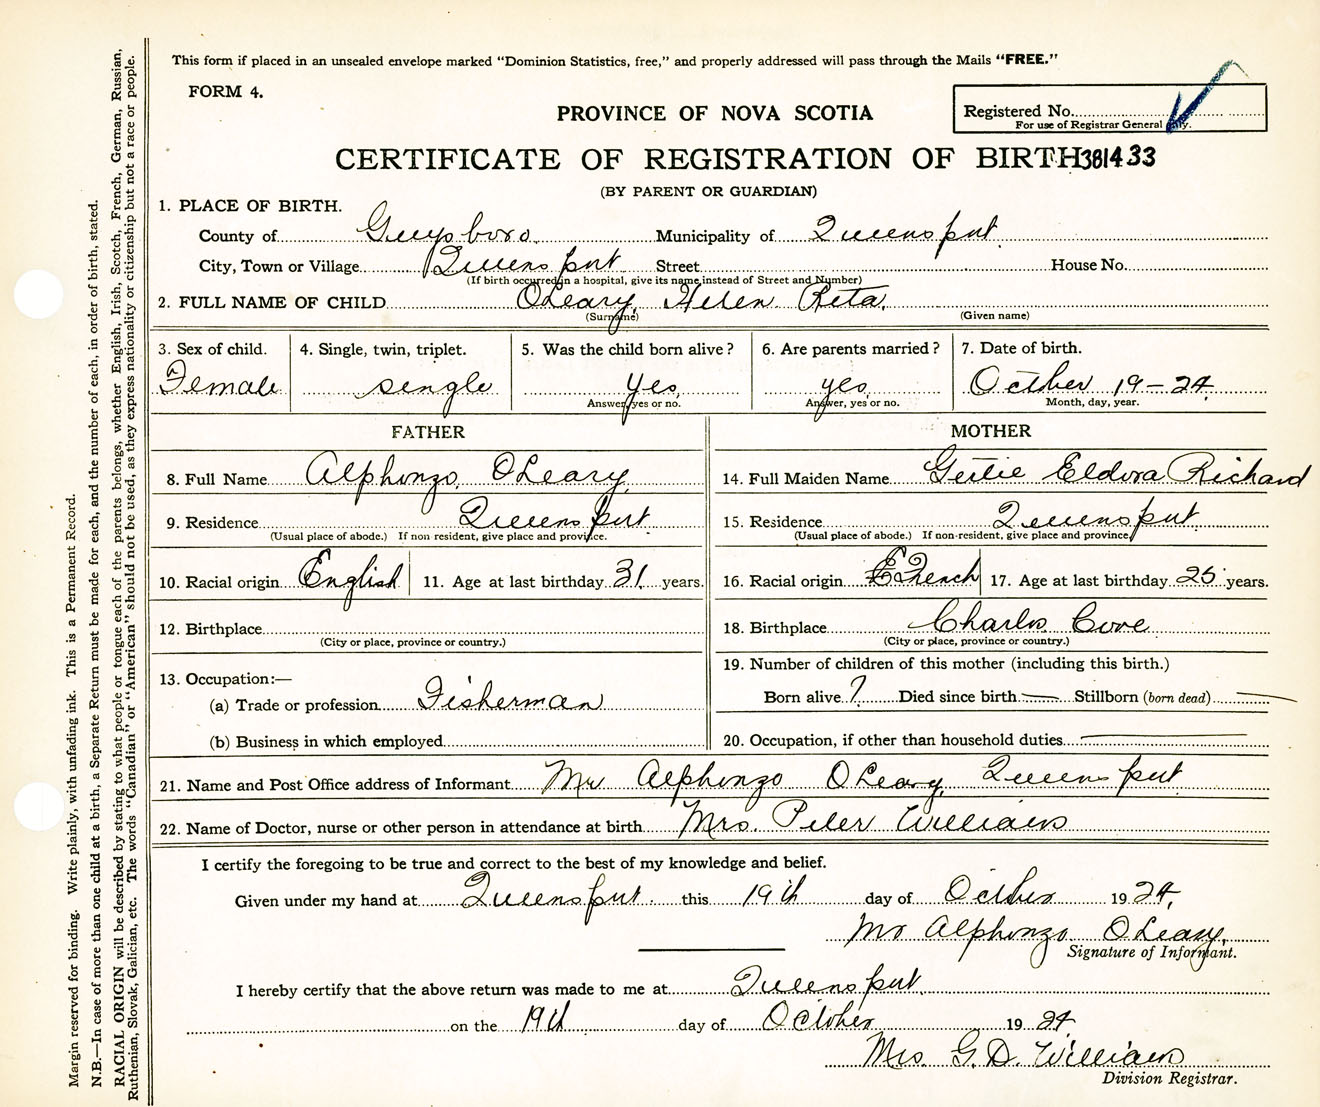 This form if placed in an unsealed envelope marked "Dominion Statistics, free," and properly addressed will pass through the Mails "FREE."
FORM 4.
PROVINCE OF NOVA SCOTIA
Registered No.
For use of Registrar General only.
CERTIFICATE OF REGISTRATION OF BIRTH 381433
(BY PARENT OR GUARDIAN)
1. PLACE OF BIRTH.
County of Guysboro Municipality of Queensport
City, Town or Village Queensport Street House No.
(If birth occurred in a hospital, give its name instead of Street and Number)
2. FULL NAME OF CHILD O'Leary, Helen Reta.
(Surname) (Given name)
3. Sex of child. 4. Single, twin, triplet. 5. Was the child born alive? 6. Are parents married? 7. Date of birth.
Female single yes yes October 19-24
Answer, yes or no. Answer, yes or no. Month, day, year.
FATHER MOTHER
8. Full Name Alphonzo O'Leary 14. Full Maiden Name Eldora Richard
9. Residence Queensport 15. Residence Queensport
(Usual place of abode.) If non resident, give place and province. (Usual place of abode.) If non-resident, give place and province.
10. Racial origin English 11. Age at last birthday 31 years. 16. Racial origin French 17. Age at last birthday 25 years.
12. Birthplace 18. Birthplace Charlos Cove
(City or place, province or country.) (City or place, province or country.)
13. Occupation:— 19. Number of children of this mother (including this birth.)
(a) Trade or profession Fisherman Born alive ? Died since birth — Stillborn (born dead) —
(b) Business in which employed 20. Occupation, if other than household duties —
21. Name and Post Office address of Informant Mr Alphonzo O'Leary, Queensport
22. Name of Doctor, nurse or other person in attendance at birth Mrs. Peter Williams
I certify the foregoing to be true and correct to the best of my knowledge and belief.
Given under my hand at Queensport this 19th day of October 1924,
Mr Alphonzo O'Leary,
Signature of Informant.
I hereby certify that the above return was made to me at Queensport
on the 19th day of October 1924
Mrs. G. D. Williams
Division Registrar.
Margin reserved for binding. Write plainly, with unfading ink. This is a Permanent Record.
N.B.—In case of more than one child at a birth, a Separate Return must be made for each, and the number of each, in order of birth, stated.
RACIAL ORIGIN will be described by stating to what people or tongue each of the parents belongs, whether English, Irish, Scotch, French, German, Russian,
Ruthenian, Slovak, Galician, etc. The words "Canadian" or "American" should not be used, as they express nationality or citizenship but not a race or people.